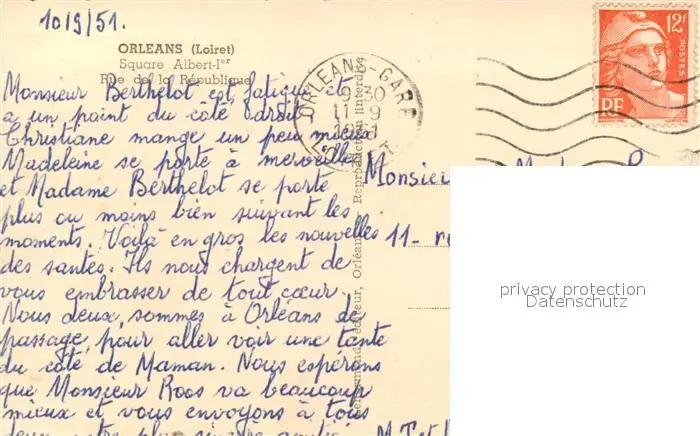 10/9/51.
ORLEANS (Loiret)
Square Albert-Ier
Rue de la République
Monsieur Berthelot est fatigué et
a un point du côté droit.
Christiane mange un peu mieux
Madeleine se porte à merveille
et Madame Berthelot se porte
plus ou moins bien suivant les
moments. Voilà en gros les nouvelles
des santes. Ils nous chargent de
vous embrasser de tout cœur.
Nous deux, sommes à Orléans de
passage, pour aller voir une tante
du côté de Maman. Nous espérons
que Monsieur Roos va beaucoup
mieux et vous envoyons à tous
deux notre plus sincère amitié
M.T et
éditeur, Orléans Reproduction interdite
ORLÉANS-GARE
9 30
11 9
1951
12F
POSTES
RF
Monsie
11 - r
privacy protection
Datenschutz